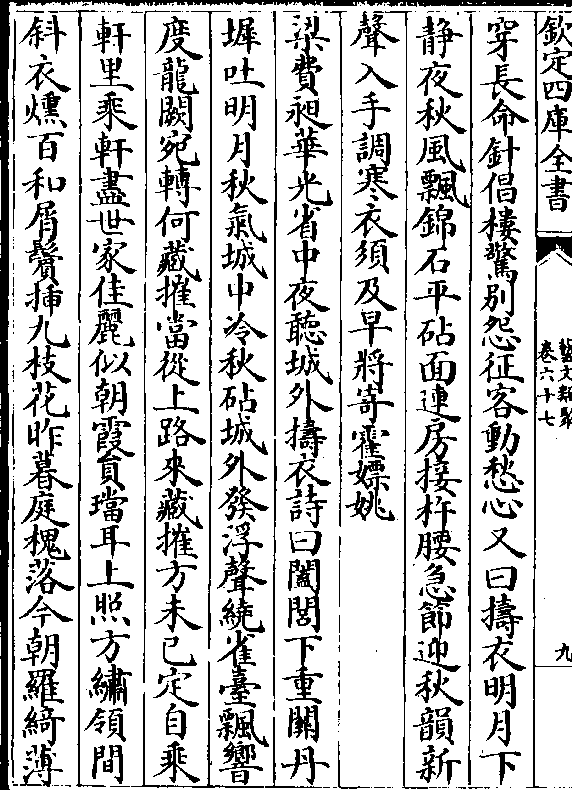 欽定四庫全書
藝文類聚
卷六十七
九
穿長命針倡樓驚别怨征客動愁心又曰擣衣明月下
静夜秋風飄錦石平砧面連房接杵腰急節迎秋韻新
聲入手調寒衣須及早將寄霍嫖姚
梁費昶華光省中夜聽城外擣衣詩曰閶闔下重關丹
墀吐明月秋氣城中冷秋砧城外發浮聲繞雀臺飄響
度龍闕宛轉何藏摧當從上路來藏摧方未已定自乘
軒里乘軒盡世家佳麗似朝霞負璫耳上照方繡領間
斜衣燻百和屑鬢揷九枝花昨暮庭槐落今朝羅綺薄